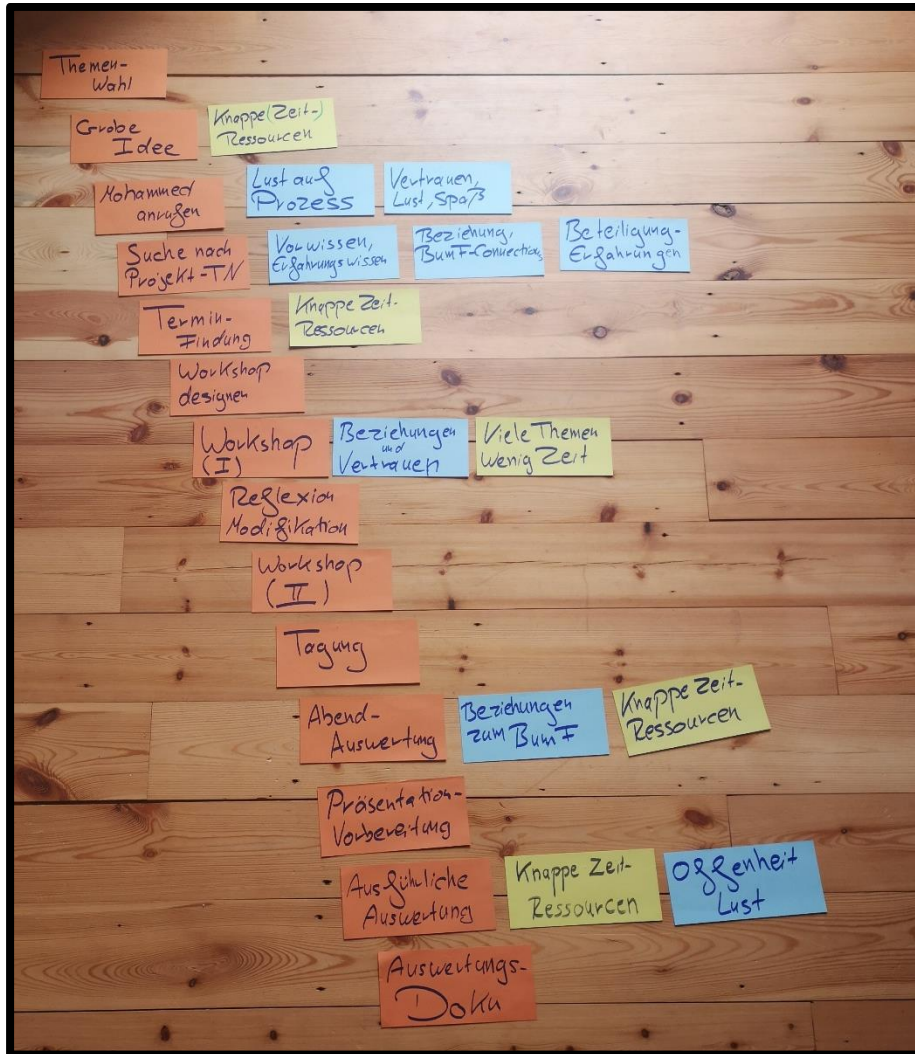 Themen-
Wahl
Grobe
Idee
Knappe (Zeit-)
Ressourcen
Mohammed
anrufen
Lust auf
Prozess
Vertrauen,
Lust, Spaß
Suche nach
Projekt-TN
Vorwissen,
Erfahrungswissen
Beziehung,
BumF-Connections
Beteiligung-
Erfahrungen
Termin-
Findung
Knappe Zeit-
Ressourcen
Workshop
designen
Workshop
(I)
Beziehungen
und
Vertrauen
Viele Themen
Wenig Zeit
Reflexion
Modifikation
Workshop
(II)
Tagung
Abend-
Auswertung
Beziehungen
zum BumF
Knappe Zeit-
Ressourcen
Präsentation-
Vorbereitung
Ausführliche
Auswertung
Knappe Zeit-
Ressourcen
Offenheit
Lust
Auswertungs-
Doku